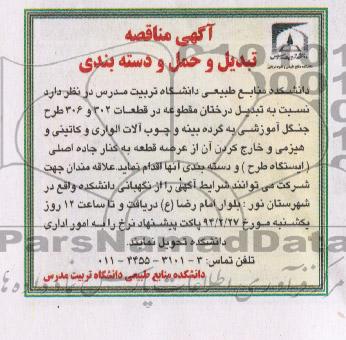 آگهی مناقصه
تبدیل و حمل و دسته بندی
دانشکده منابع طبیعی دانشگاه تربیت مدرس در نظر دارد
نسبت به تبدیل درختان مقطوعه در قطعات ۳۰۲ و ۳۰۶ طرح
جنگل آموزشی به گرده بینه و چوب آلات الواری و کاتینی و
هیزمی و خارج کردن آن از عرصه قطعه به کنار جاده اصلی
(ایستگاه طرح) و دسته بندی آنها اقدام نماید علاقه مندان جهت
شرکت می توانند شرایط آگهی را از نگهبانی دانشکده واقع در
شهرستان نور: بلوار امام رضا (ع) دریافت و تا ساعت ۱۲ روز
یکشنبه مورخ ۹۴/۲/۲۷ پاکت پیشنهاد نرخ را به امور اداری
دانشکده تحویل نمایند.
تلفن تماس: ۳ - ۳۱۰۱ - ۴۴۵۵ - ۰۱۱
دانشکده منابع طبیعی دانشگاه تربیت مدرس
ParsNamadData